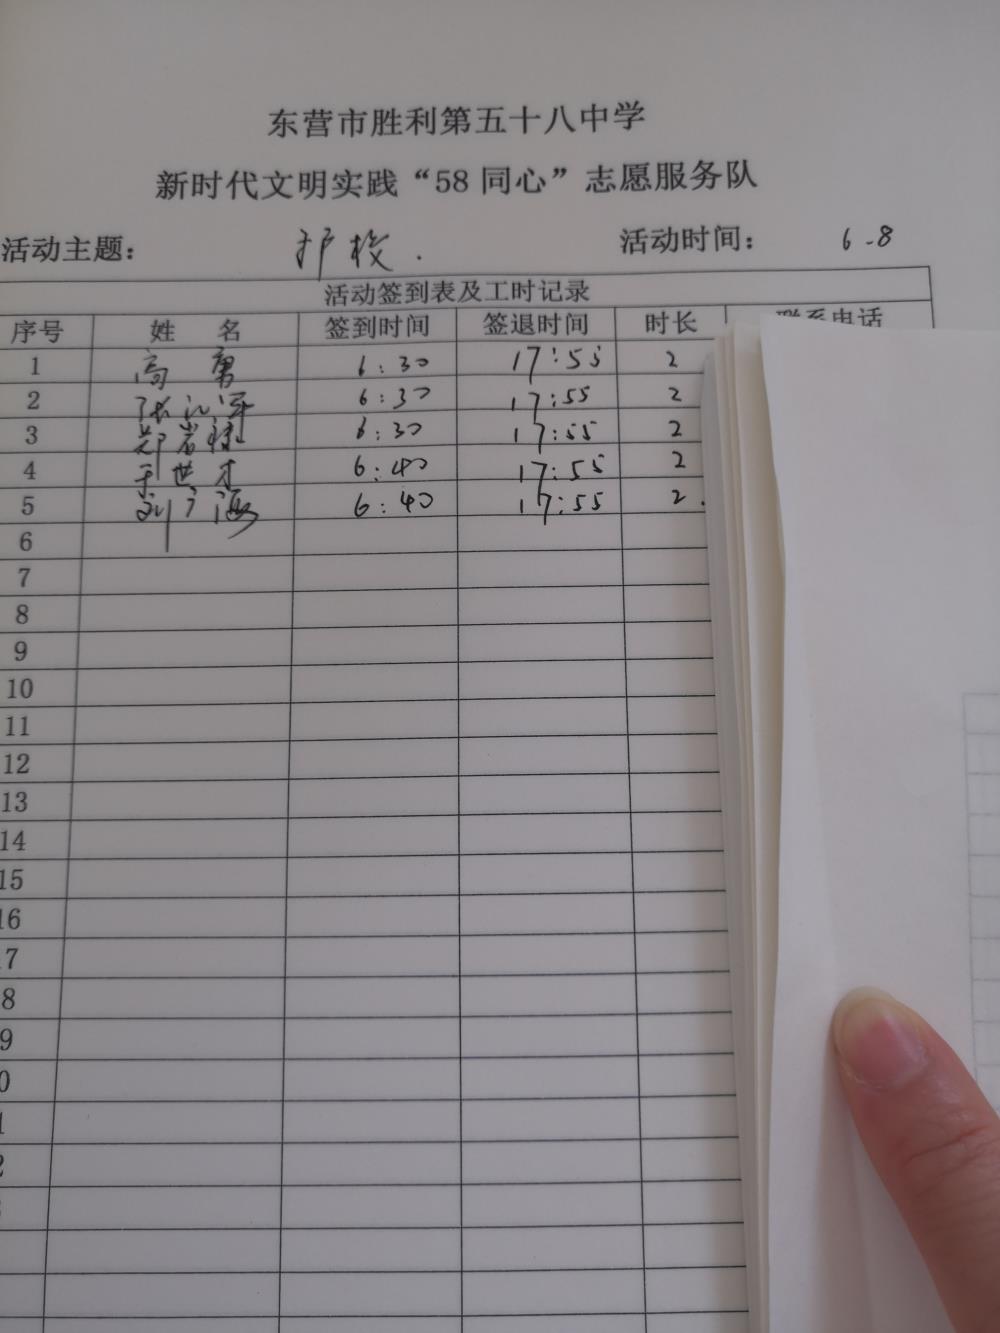 东营市胜利第五十八中学
新时代文明实践“58 同心”志愿服务队
活动主题： 护校. 活动时间： 6.8
活动签到表及工时记录
序号 姓 名 签到时间 签退时间 时长 联系电话
1 高勇 6:30 17:55 2
2 张 6:30 17:55 2
3 郑岩 6:30 17:55 2
4 于世才 6:40 17:55 2
5 刘广海 6:40 17:55 2.
6
7
8
9
10
11
12
13
14
15
16
7
8
9
0
1
2